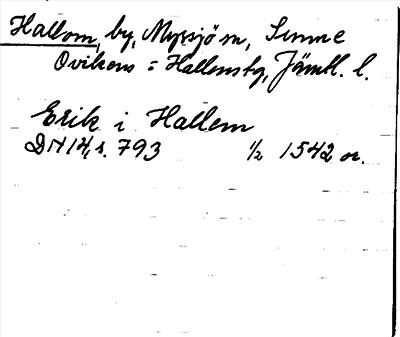 Hallom, by, Myssjö sn, Sunne
Ovikens = Hallenstg, Jämtl. l.
Erik i Hallem
DN 14, s. 793 1/2 1542 or.